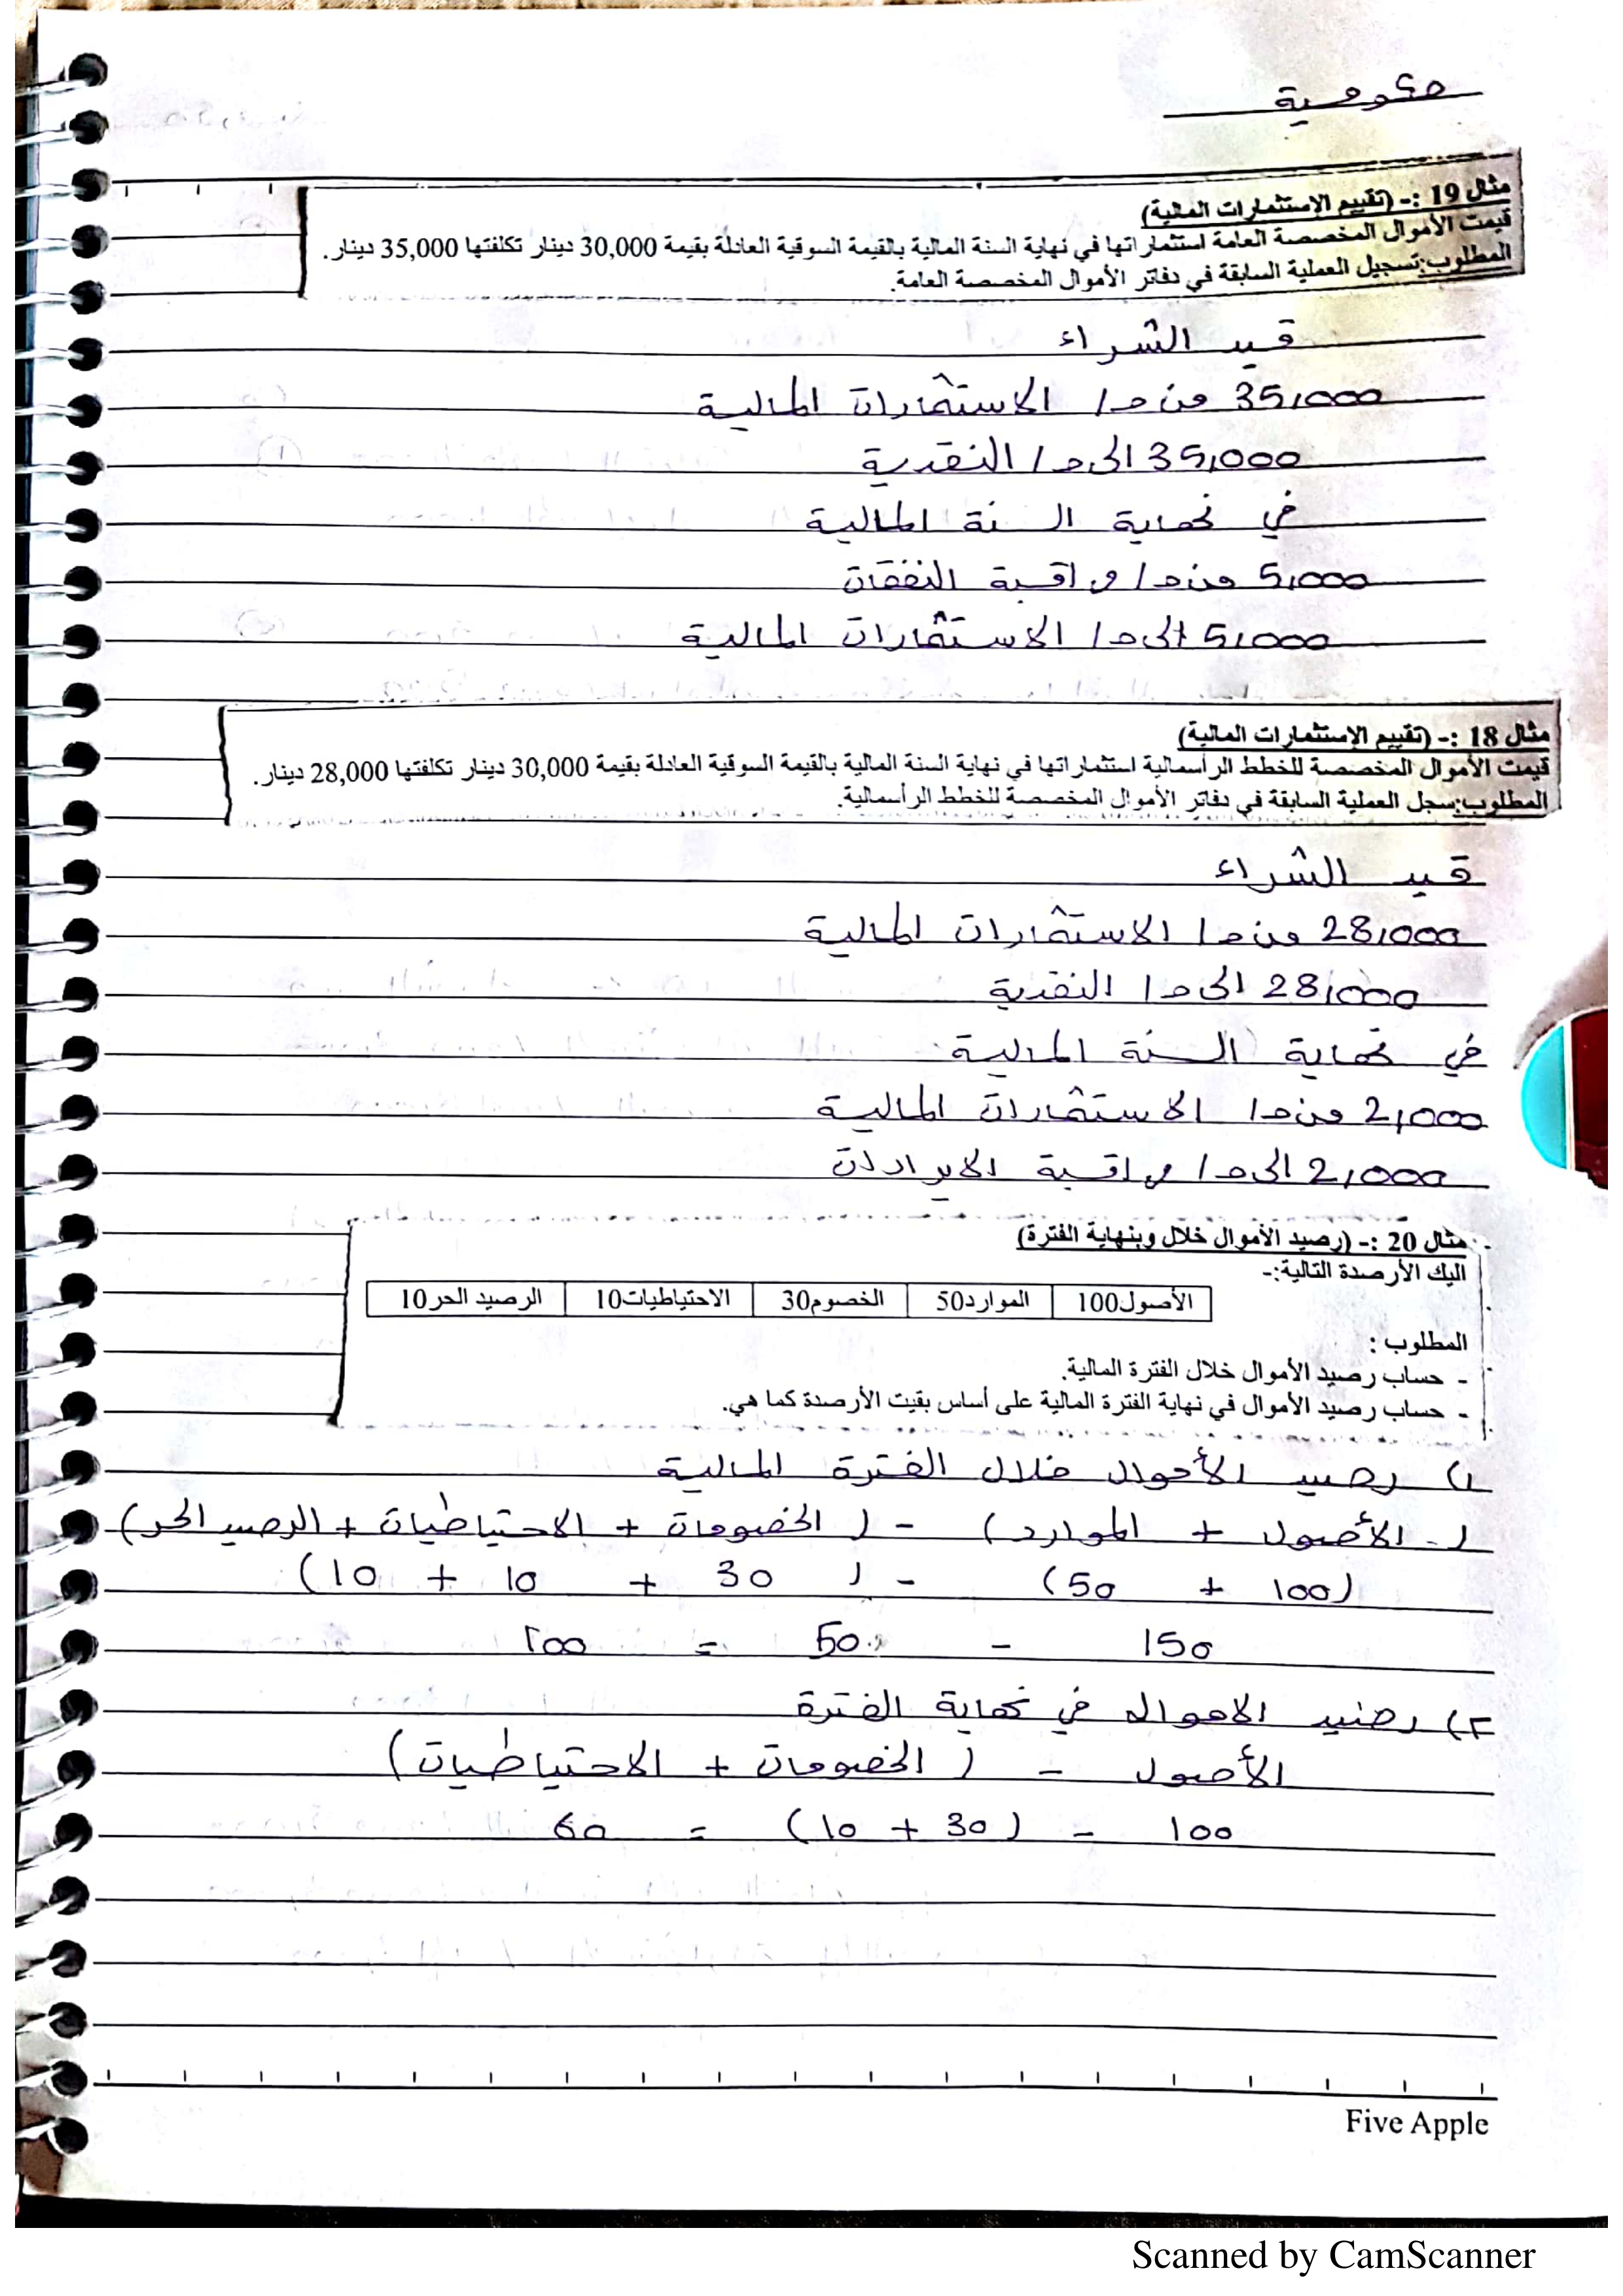 حكومية
مثال 19 :- (تقييم الإستثمارات المالية)
قيمت الأموال المخصصة العامة استثماراتها في نهاية السنة المالية بالقيمة السوقية العادلة بقيمة 30,000 دينار تكلفتها 35,000 دينار.
المطلوب:تسجيل العملية السابقة في دفاتر الأموال المخصصة العامة.
قيد الشراء
35,000 من ح/ الاستثمارات المالية
35,000 الى ح/ النقدية
في نهاية السنة المالية
5,000 من ح/ مراقبة النفقات
5,000 الى ح/ الاستثمارات المالية
مثال 18 :- (تقييم الإستثمارات المالية)
قيمت الأموال المخصصة للخطط الرأسمالية استثماراتها في نهاية السنة المالية بالقيمة السوقية العادلة بقيمة 30,000 دينار تكلفتها 28,000 دينار.
المطلوب:سجل العملية السابقة في دفاتر الأموال المخصصة للخطط الرأسمالية.
قيد الشراء
28,000 من ح/ الاستثمارات المالية
28,000 الى ح/ النقدية
في نهاية السنة المالية
2,000 من ح/ الاستثمارات المالية
2,000 الى ح/ مراقبة الايرادات
مثال 20 :- (رصيد الأموال خلال وبنهاية الفترة)
اليك الأرصدة التالية:-
الأصول100 الموارد50 الخصوم30 الاحتياطيات10 الرصيد الحر10
المطلوب :
- حساب رصيد الأموال خلال الفترة المالية.
- حساب رصيد الأموال في نهاية الفترة المالية على أساس بقيت الأرصدة كما هي.
1) رصيد الأموال خلال الفترة المالية
(الأصول + الموارد) - (الخصومات + الاحتياطيات + الرصيد الحر)
(100 + 50) - (30 + 10 + 10)
150 - 50 = 100
2) رصيد الاموال في نهاية الفترة
الأصول - (الخصومات + الاحتياطيات)
100 - (30 + 10) = 60
Five Apple
Scanned by CamScanner